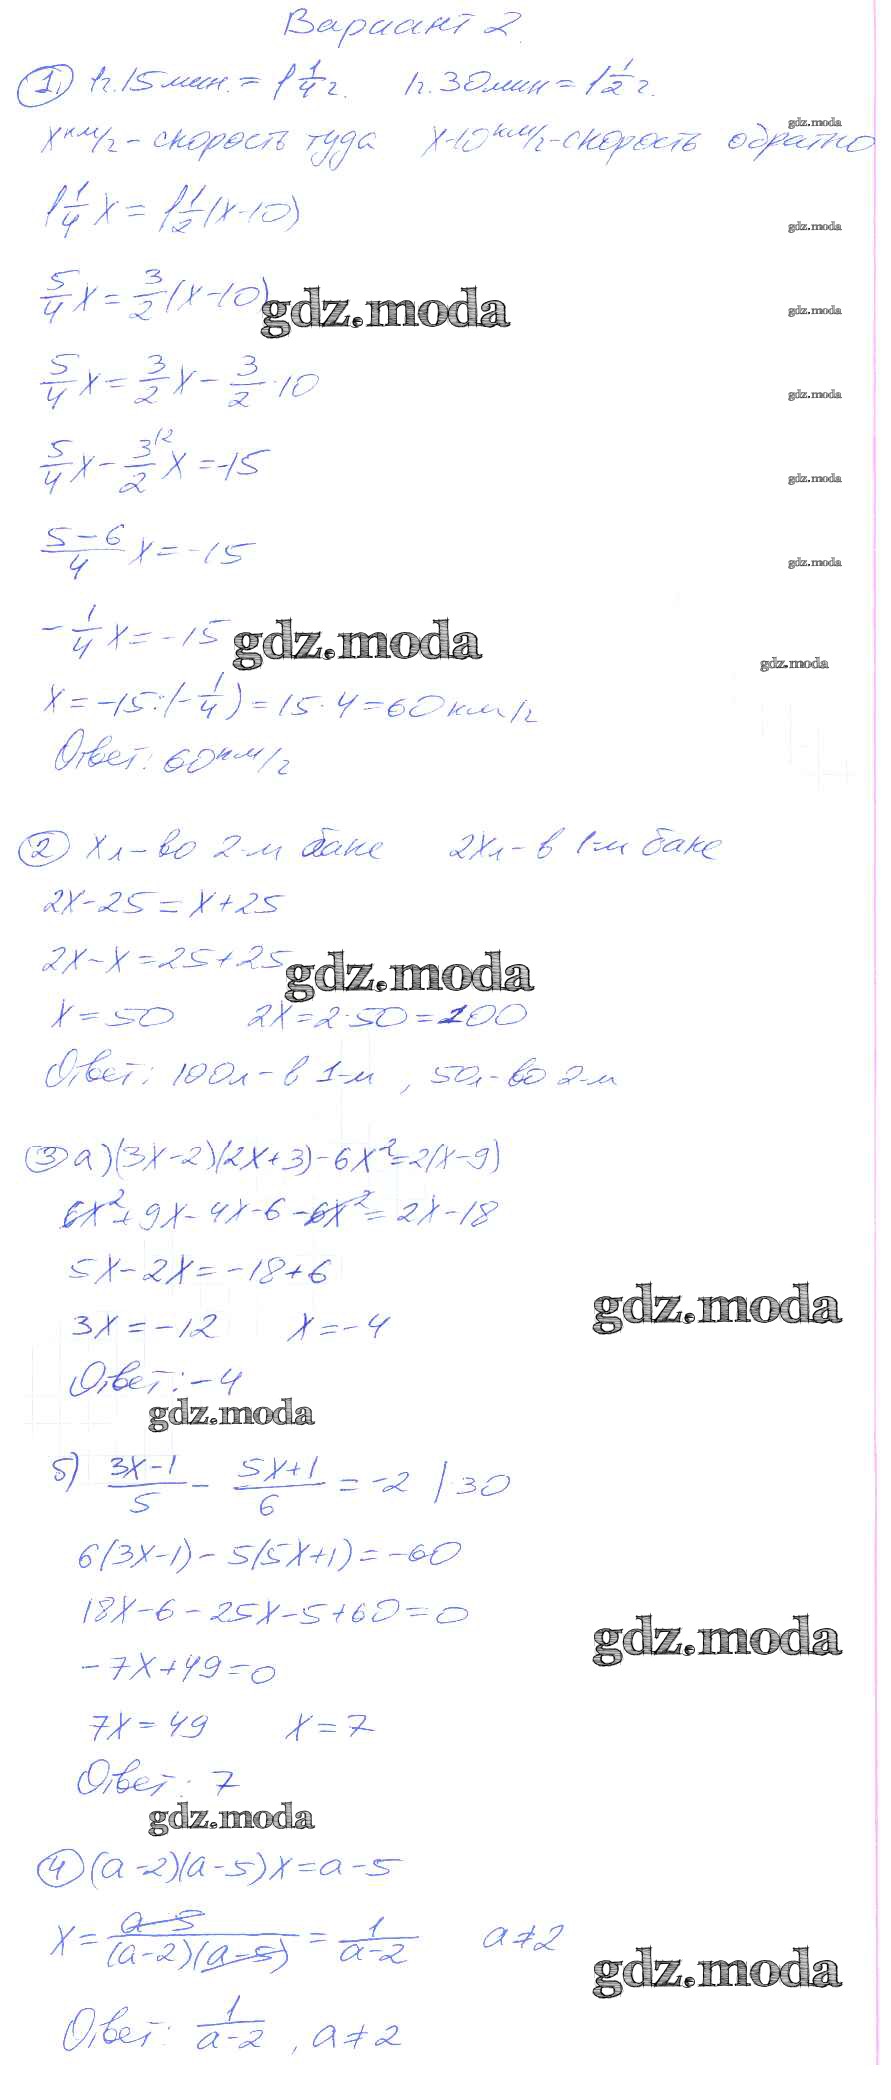 Вариант 2.
1. 1ч.15мин. = 1 1/4 ч. 1ч.30мин = 1 1/2 ч.
x км/ч - скорость туда x-10 км/ч - скорость обратно
gdz.moda
1 1/4 x = 1 1/2 (x-10)
gdz.moda
5/4 x = 3/2 (x-10)
gdz.moda
gdz.moda
5/4 x = 3/2 x - 3/2 · 10
gdz.moda
5/4 x - 3/2 \2 x = -15
gdz.moda
(5-6)/4 x = -15
gdz.moda
-1/4 x = -15
gdz.moda
gdz.moda
x = -15 : (-1/4) = 15 · 4 = 60 км/ч
Ответ: 60 км/ч
2 xл - во 2-м баке 2xл - в 1-м баке
2x-25 = x+25
2x-x = 25+25
gdz.moda
x = 50 2x = 2·50 = 100
Ответ: 100л - в 1-м, 50л - во 2-м
3 а) (3x-2)(2x+3) - 6x² = 2(x-9)
6x² + 9x - 4x - 6 - 6x² = 2x - 18
5x - 2x = -18+6
3x = -12 x = -4
gdz.moda
Ответ: -4
gdz.moda
б) (3x-1)/5 - (5x+1)/6 = -2 |·30
6(3x-1) - 5(5x+1) = -60
18x - 6 - 25x - 5 + 60 = 0
gdz.moda
-7x+49 = 0
7x = 49 x = 7
Ответ: 7
gdz.moda
4 (a-2)(a-5)x = a-5
x = (a-5)/((a-2)(a-5)) = 1/(a-2) a≠2
gdz.moda
Ответ: 1/(a-2), a≠2